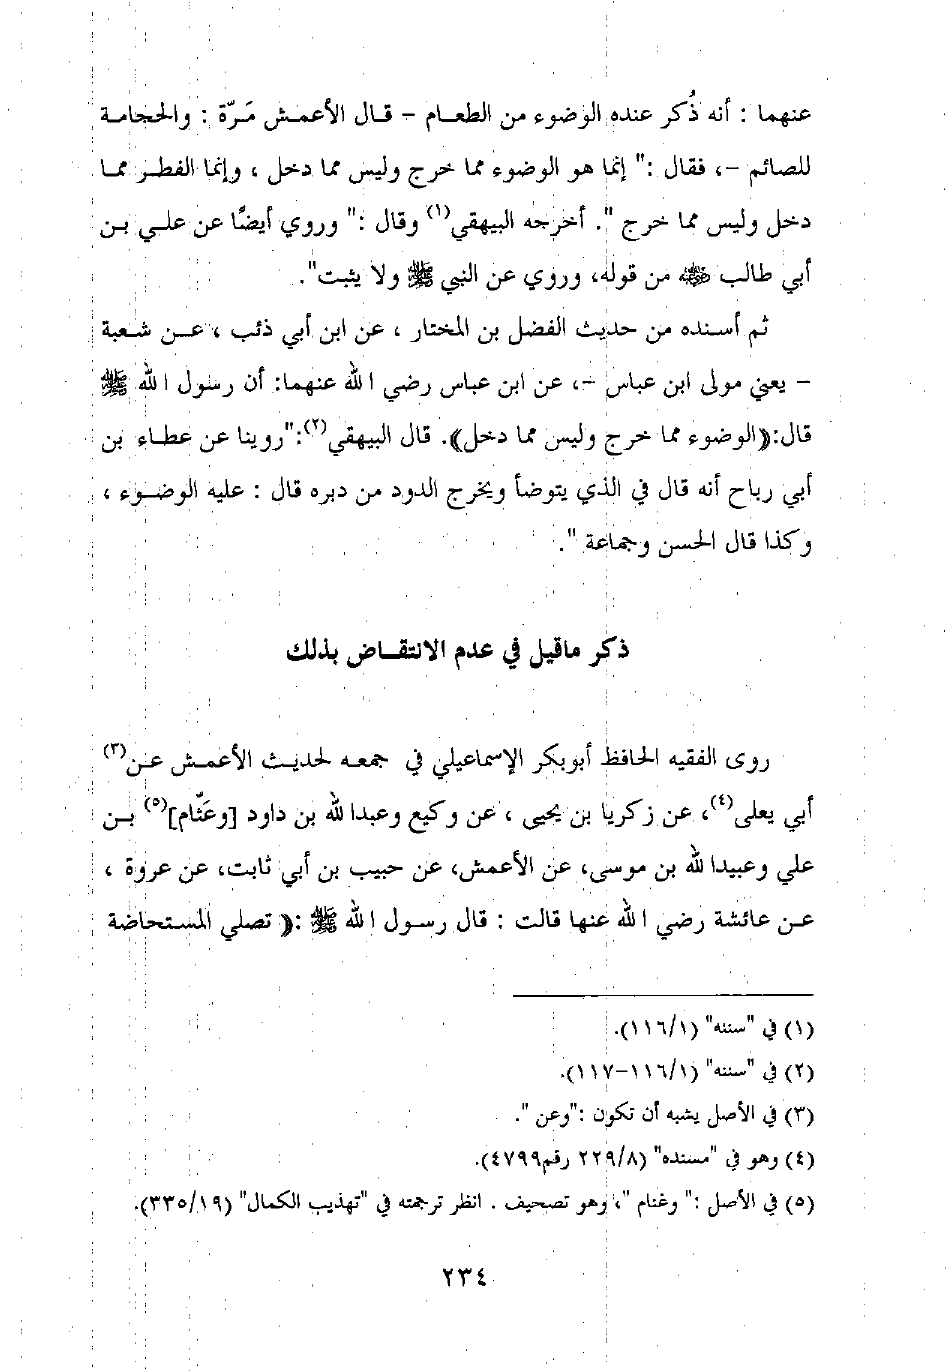 عنهما : أنه ذُكر عنده الوضوء من الطعـام – قـال الأعمـش مَـرّة : والحجامـة
للصائم –، فقال :" إنما هو الوضوء مما خرج وليس مما دخل ، وإنما الفطـر ممـا
دخل وليس مما خرج ". أخرجه البيهقي(١) وقال :" وروي أيضًا عن علـي بـن
أبي طالب ﷺ من قوله، وروي عن النبي ﷺ ولا يثبت".
ثم أسـنده من حديث الفضل بن المختار ، عن ابن أبي ذئب ، عـن شـعبة
– يعني مولى ابن عباس –، عن ابن عباس رضي الله عنهما: أن رسول الله ﷺ
قال:﴿الوضوء مما خرج وليس مما دخل﴾. قال البيهقي(٢):"روينا عن عطـاء بن
أبي رباح أنه قال في الذي يتوضأ ويخرج الدود من دبره قال : عليه الوضـوء ،
وكذا قال الحسن وجماعة ".
ذكر ماقيل في عدم الانتقـاض بذلك
روى الفقيه الحافظ أبوبكر الإسماعيلي في جمعـه لحديـث الأعمـش عـن(٣)
أبي يعلى(٤)، عن زكريا بن يحيى ، عن وكيع وعبدالله بن داود [وعَثّام](٥) بـن
علي وعبيدالله بن موسى، عن الأعمش، عن حبيب بن أبي ثابت، عن عروة ،
عـن عائشة رضي الله عنها قالت : قال رسـول الله ﷺ :﴿ تصلي المستحاضة
(١) في "سننه" (١١٦/١).
(٢) في "سننه" (١١٦/١–١١٧).
(٣) في الأصل يشبه أن تكون :"وعن ".
(٤) وهو في "مسنده" (٢٢٩/٨ رقم٤٧٩٩).
(٥) في الأصل :" وغنام "، وهو تصحيف . انظر ترجمته في "تهذيب الكمال" (٣٣٥/١٩).
٢٣٤